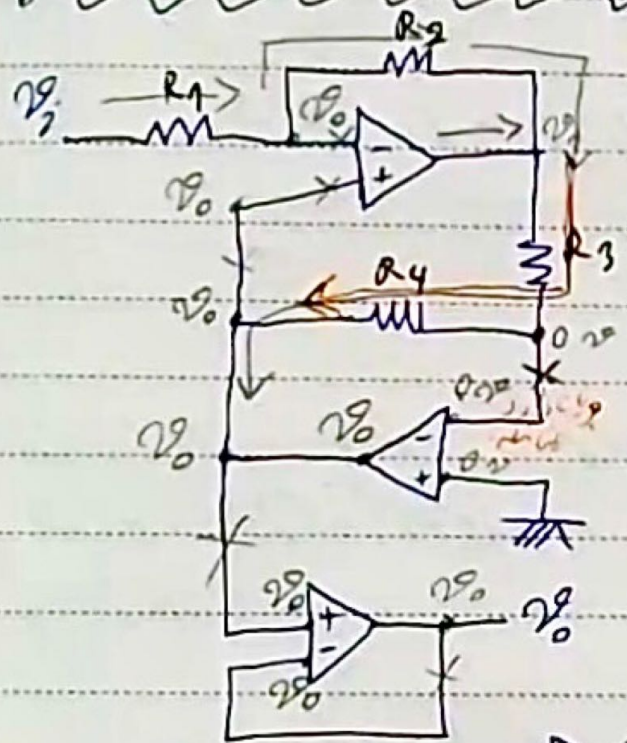 R2
R1
v_i
v_o
v_1
−
+
v_o
R3
R4
v_o
0 v
0 v
v_o
v_o
−
+
0 v
v_o
v_o
v_o
+
−
v_o